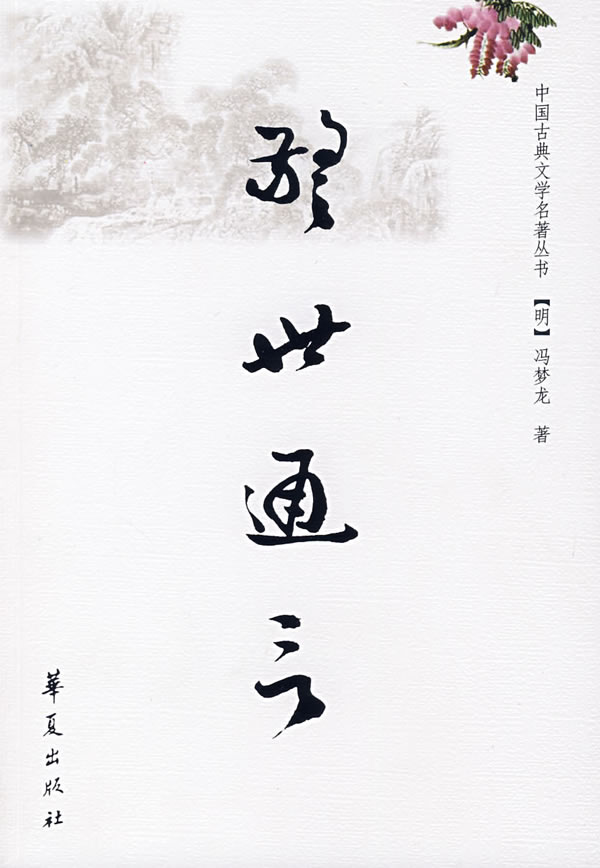 中国古典文学名著丛书 【明】 冯梦龙 著
警世通言
華夏出版社